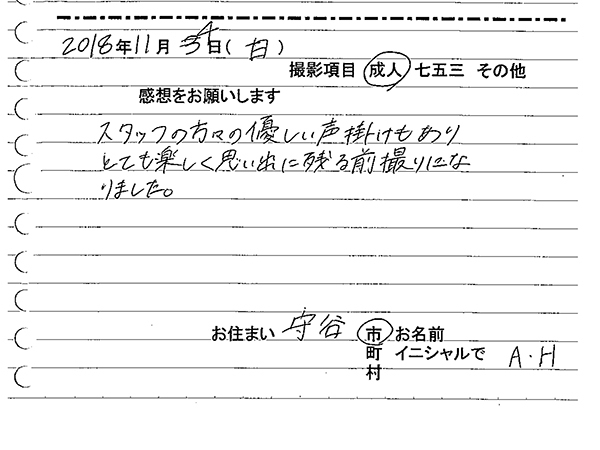 2018年11月4日(日)
撮影項目 成人 七五三 その他
感想をお願いします
スタッフの方々の優しい声掛けもあり
とても楽しく思い出に残る前撮りにな
りました。
お住まい 守谷 市 お名前
町 イニシャルで A・H
村